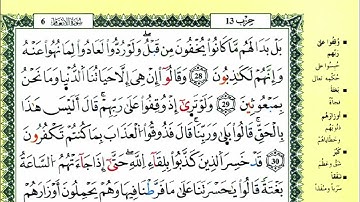 6 سورة الأنعام
حزب 13
بَلْ بَدَا لَهُم مَّا كَانُوا۟ يُخْفُونَ مِن قَبْلُ وَلَوْ رُدُّوا۟ لَعَادُوا۟ لِمَا نُهُوا۟ عَنْهُ
وَإِنَّهُمْ لَكَٰذِبُونَ 28 وَقَالُوٓا۟ إِنْ هِىَ إِلَّا حَيَاتُنَا ٱلدُّنْيَا وَمَا نَحْنُ
بِمَبْعُوثِينَ 29 وَلَوْ تَرَىٰٓ إِذْ وُقِفُوا۟ عَلَىٰ رَبِّهِمْ قَالَ أَلَيْسَ هَٰذَا
بِٱلْحَقِّ قَالُوا۟ بَلَىٰ وَرَبِّنَا قَالَ فَذُوقُوا۟ ٱلْعَذَابَ بِمَا كُنتُمْ تَكْفُرُونَ
30 قَدْ خَسِرَ ٱلَّذِينَ كَذَّبُوا۟ بِلِقَآءِ ٱللَّهِ حَتَّىٰٓ إِذَا جَآءَتْهُمُ ٱلسَّاعَةُ
بَغْتَةً قَالُوا۟ يَٰحَسْرَتَنَا عَلَىٰ مَا فَرَّطْنَا فِيهَا وَهُمْ يَحْمِلُونَ أَوْزَارَهُمْ
وُقِفُوا عَلَى
رَبِّهِم
حُبِسُوا على
حُكْمِه تعالى
بَغْتَةً
فجأة
أَوْزَارَهُمْ
ذنوبهم
وخطاياهم
كَبُرَ
شقّ وعظم
نَفَقًا
سَرَبًا ومنفذًا